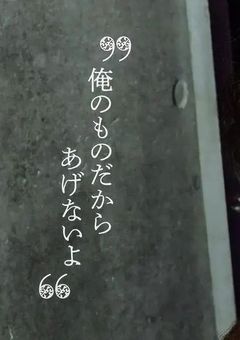 ❠俺のものだから
あげないよ❠